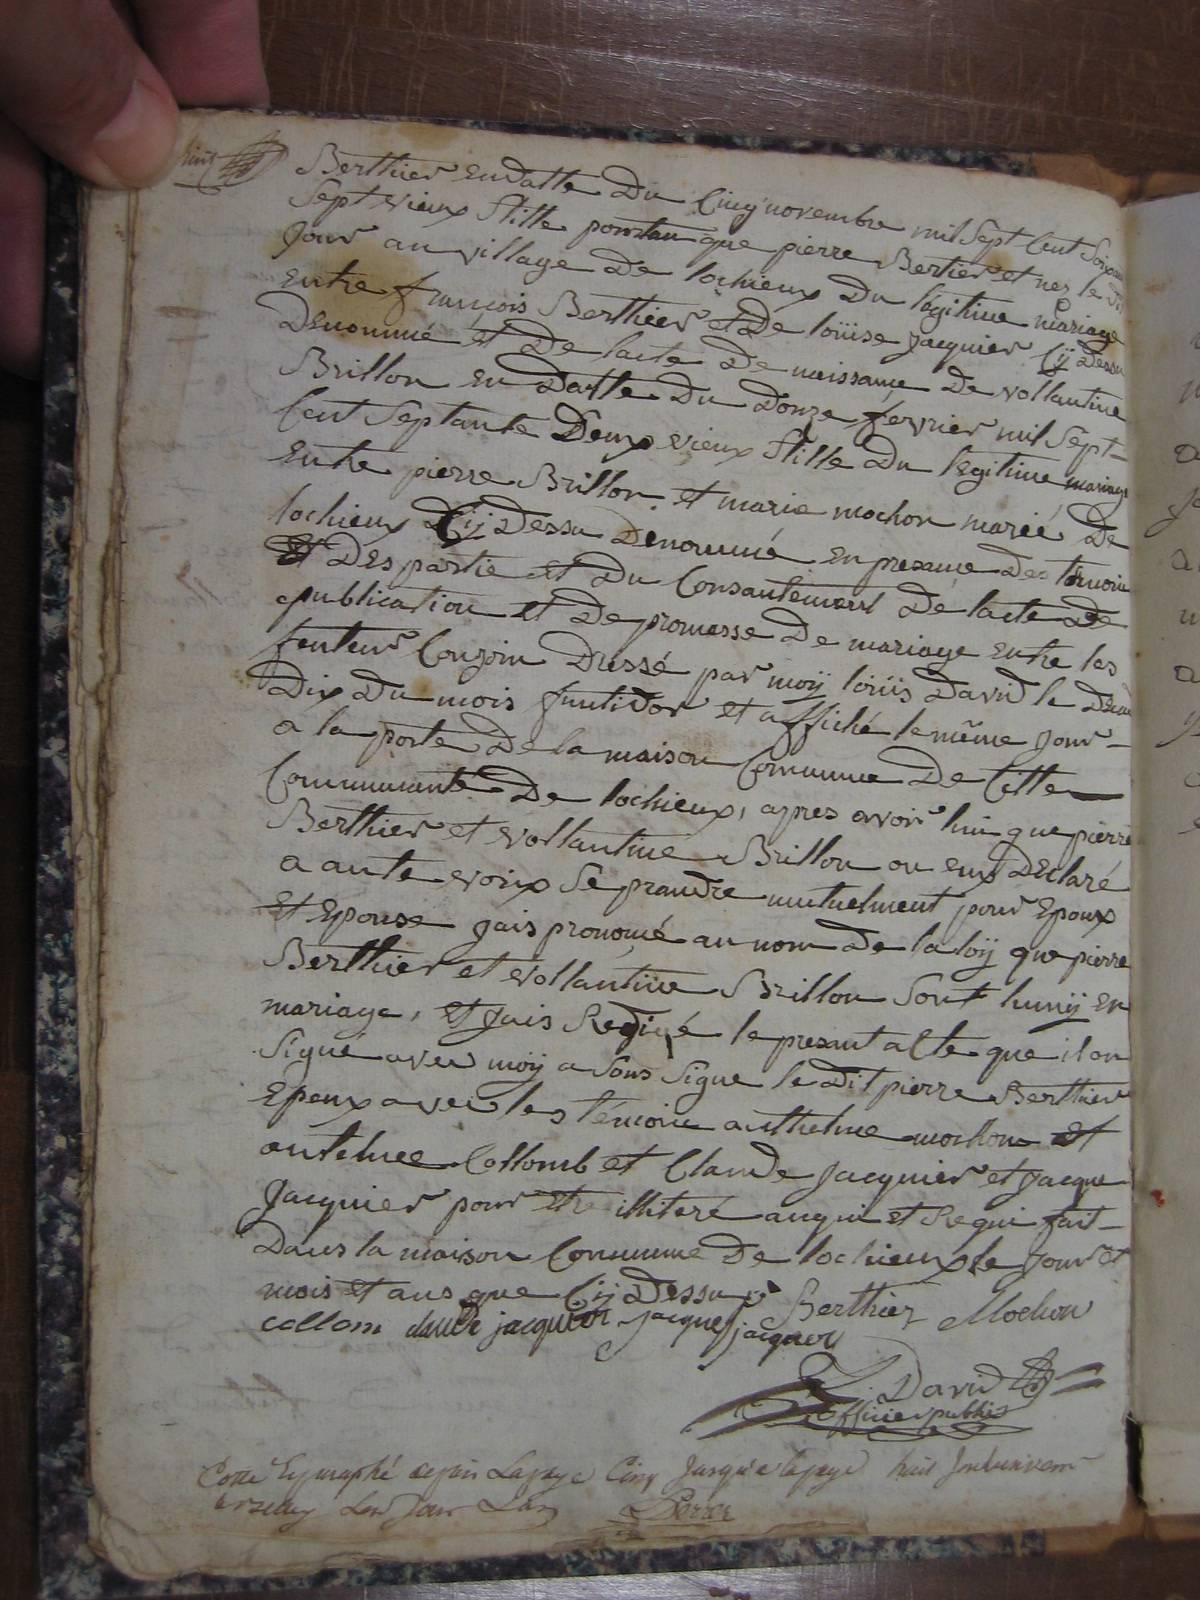 Berthier en datte Du Cinq novembre mil Sept Cent Soixante
Sept vieux Stille portan que pierre Bertier et nez le dit
Jour au village De lochieux Du légitime mariage
Entre françois Berthier et De loüise Jacquier Cÿ Dessu
Denommé et De lacte De naissance De vollantine
Brillon En Datte Du Donze fevrier mil Sept
Cent Septante Deux vieux Stille Du légitime mariage
Entre pierre Brillon et marie mochon marié De
lochieux Cÿ Dessu Denommé En presance Des témoin
Et Des partie et Du Consantement De lacte De
publication et De promesse De mariage Entre les
feuteur Conjoin Dressé par moÿ loüis David le
Dix Du mois fructidor et affiché le même Jour
a la porte De la maison Commune De Cette
Communauté De lochieux, apres avoir que pierre
Berthier et vollantine Brillon on eux Déclaré
a aute voix Se prandre mutuelment pour Epoux
Et Epouse jais pronomé au nom De la loÿ que pierre
Berthier et vollantine Brillon Sont hunÿ En
mariage, Et jais Redigé le presant alte que ilon
Signé avec moÿ a Sous Signe le Dit pierre Berthier
Epoux avec les témoin anthelme mochon Et
antelmee Collomb et Claude Jacquier et Jacque
Jacquier pour etre illiteré auqui et Requi fait
Dans la maison Commune De lochieux le Jour et
mois et ans que Cÿ Dessu Berthier Mochon
collom claude jacquier jacque jacquer
David
officier public
Cotté Et paraphé depuis La page Cinq Jusqu'a la page huit